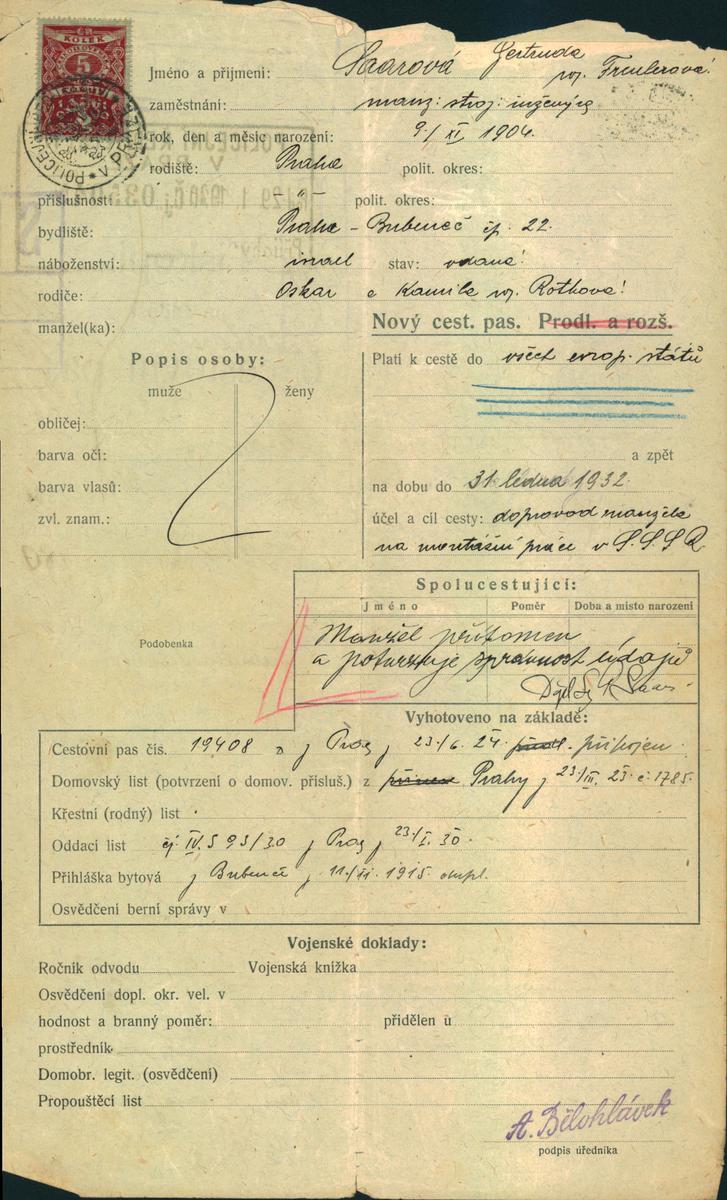 KOLEK
5
Jméno a přijmení: Saarová Gertruda
roz. Freulerova!
zaměstnání: manž: stroj: inženýra
rok, den a měsíc narození: 9/XI 1904.
rodiště: Praha polit. okres:
příslušnosti -"- polit. okres:
bydliště: Praha - Bubeneč čp. 22.
náboženství: israel stav: vdaná!
rodiče: Oskar a Kamila roz. Rothova!
manžel(ka):
Nový cest. pas. Prodl. a rozš.
Popis osoby:
muže ženy
obličej:
barva očí:
barva vlasů:
zvl. znam.:
Platí k cestě do všech evrop. států
a zpět
na dobu do 31. ledna 1932.
účel a cíl cesty: doprovod manžela
na montážní práce v S.S.S.R.
Podobenka
Spolucestující:
Jméno Poměr Doba a místo narození
Manžel přítomen
a potvrzuje správnost údajů
Vyhotoveno na základě:
Cestovní pas čís. 19408 z Prag 23/6. 24. připojen.
Domovský list (potvrzení o domov. přísluš.) z Prahy 23/III. 23. č. 1785.
Křestní (rodný) list
Oddací list čj. IV. 593/30 Prag 23/I. 30.
Přihláška bytová Bubeneč 11./VI. 1915
Osvědčení berní správy v
Vojenské doklady:
Ročník odvodu Vojenská knížka
Osvědčení dopl. okr. vel. v
hodnost a branný poměr: přidělen u
prostředník
Domobr. legit. (osvědčení)
Propouštěcí list
A. Bělohlávek
podpis úředníka